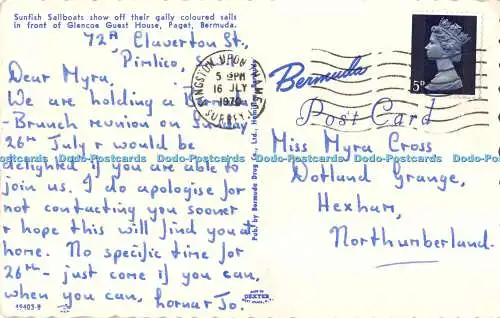 Sunfish Sailboats show off their gaily coloured sails
in front of Glencoe Guest House, Paget, Bermuda.
72A Claverton St.,
Pimlico,
Dear Myra,
We are holding a
-Brunch reunion on Sunday
26th July & would be
delighted if you are able to
join us. I do apologise for
not contacting you sooner
& hope this will find you at
home. No specific time for
26th - just come if you can,
when you can,
Jo.
49403-B
KINGSTON UPON THAMES
5 PM
16 JLY
1970
SURREY
Pub. by Bermuda Drug Co., Ltd., Hamilton, Bermuda
MADE BY
DEXTER
Bermuda
5D
Post Card
Miss Myra Cross
Dotland Grange,
Hexham,
Northumberland.
Dodo-Postcards Dodo-Postcards Dodo-Postcards Dodo-Postcards Dodo-Postcards